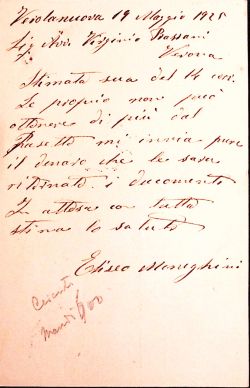 Verolanuova 19 Maggio 1925
Sig Avv Virginio Bassani
Verona
Stimata sua del 14 corr.
Se proprio non può
ottenere di più dal
mi invia pure
il denaro che le sara
ritornato i documenti
In attesa con tutta
stima lo saluto
Eliseo Meneghini
600